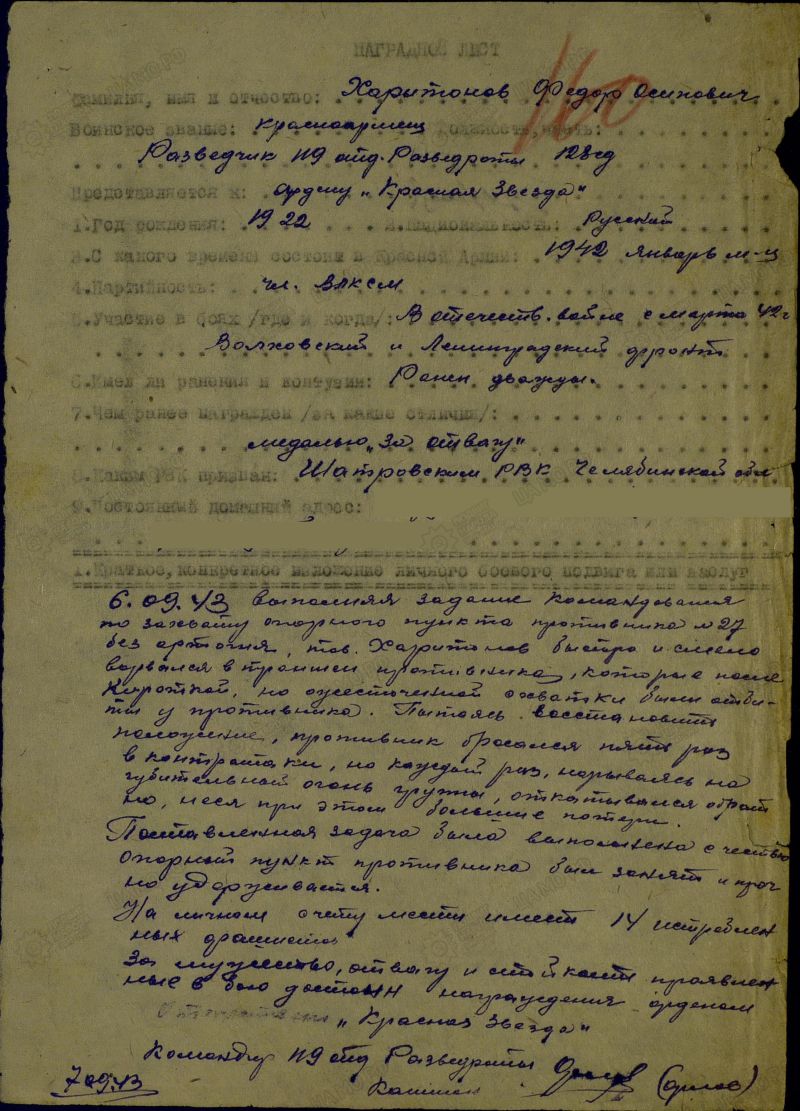 НАГРАДНОЙ ЛИСТ
160
Фамилия, имя и отчество: Харитонов Федор Осипович
Воинское звание: Красноармеец Должность, часть:
Разведчик 119 отд. Разведроты 128сд
Представляется к: ордену „Красная Звезда"
1.Год рождения: 1922 2.Национальность: Русский
3.С какого времени состоит в Красной Армии: 1942 январь м-ц
4.Партийность: чл. ВЛКСМ
5.Участие в боях /где и когда/: В отечеств. войне с марта 42 г
Волховский и Ленинградский фронт
6.Имел ли ранения и контузии: Ранен дважды.
7.Чем ранее награжден /за какие отличия/:
медалью „За отвагу"
8.Каким РВК призван: Шатровским РВК Челябинской обл
9.Постоянный домашний адрес:
1.Краткое, конкретное изложение личного боевого подвига или заслуг
6.09.43 выполняя задание командования
по захвату опорного пункта противника м 27
без артогня, тов. Харитонов быстро и смело
ворвался в траншеи противника, которые после
короткой, но ожесточенной схватки были отби-
ты у противника. Пытаясь восстановить
положение, противник бросался пять раз
в контратаки, но каждый раз, нарываясь на
губительный огонь группы, откатывался обрат
но, неся при этом большие потери.
Поставленная задача была выполнена с честью
опорный пункт противника был занят и проч
но удерживается.
На личном счету мести имеет 14 истреблен
ных фашистов
За мужество, отвагу и стойкость проявлен
ные в бою достоин награждения орденом
„Красная Звезда"
Командир 119 отд Разведроты
7.09.43 Капитан (Орлов)